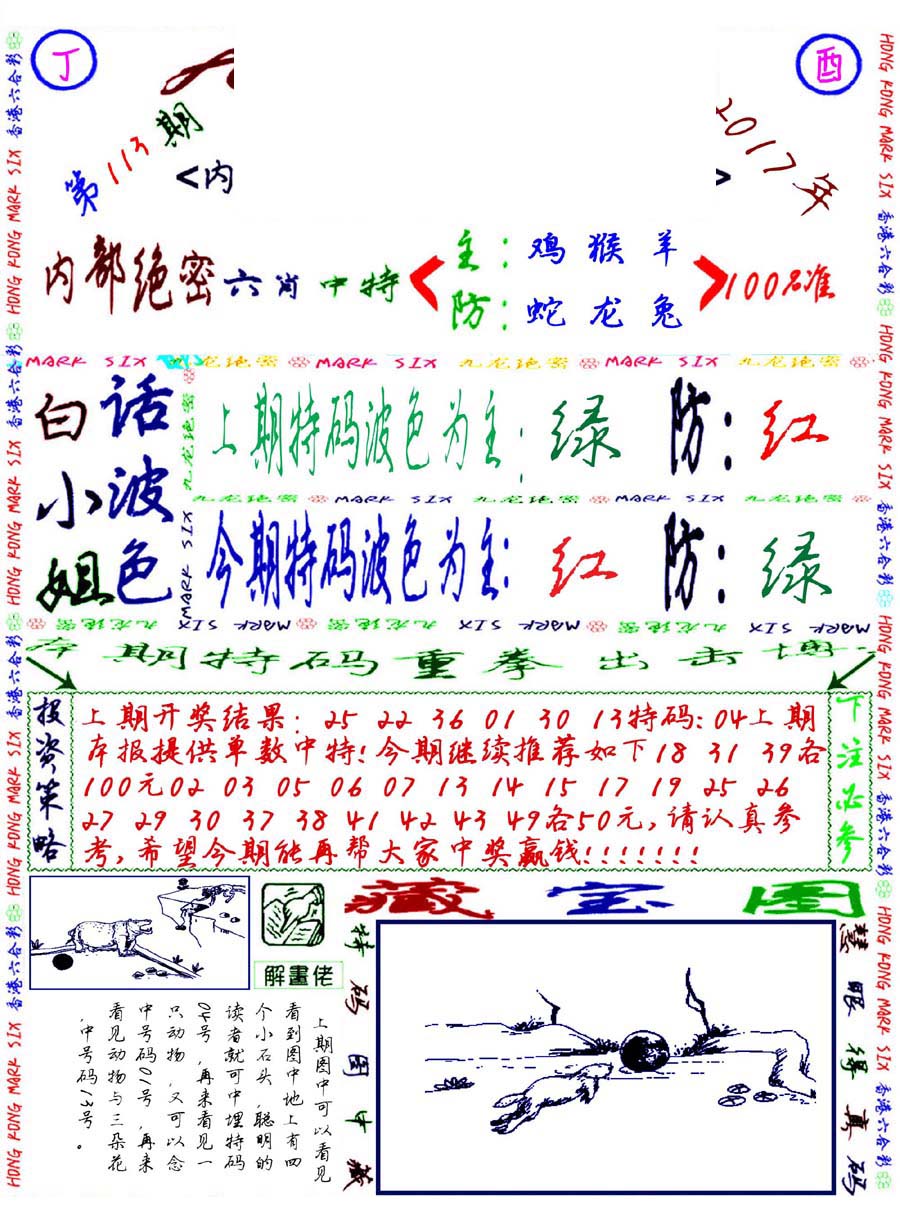 丁
酉
第113期
2017年
<内
>
内部绝密六肖中特
主：鸡猴羊
防：蛇龙兔
100%准
MARK SIX 九龙绝密 MARK SIX 九龙绝密 MARK SIX 九龙绝密
白话
小波
姐色
上期特码波色为主：绿 防：红
九龙绝密 MARK SIX 九龙绝密 MARK SIX 九龙绝密
今期特码波色为主：红 防：绿
九龙绝密
MARK SIX
九龙绝密 MARK SIX 九龙绝密 MARK SIX 九龙绝密 MARK SIX
期特码重拳出击
投资策略
上期开奖结果：25 22 36 01 30 13特码：04上期
本报提供单数中特！今期继续推荐如下18 31 39各
100元02 03 05 06 07 13 14 15 17 19 25 26
27 29 30 37 38 41 42 43 49各50元，请认真参
考，希望今期能再帮大家中奖赢钱！！！！！！！
下注必参
解畫佬
上期图中可以看见
看到图中地上有四
个小石头，聪明的
读者就可中埋特码
04号，再来看见一
只动物，又可以念
中号码01号，再来
看见动物与三朵花
，中号码13号。
藏宝图
特码图中藏
慧眼得真码
HONG KONG MARK SIX 香港六合彩 HONG KONG MARK SIX 香港六合彩 HONG KONG MARK SIX 香港六合彩 HONG KONG MARK SIX 香港六合彩
HONG KONG MARK SIX 香港六合彩 HONG KONG MARK SIX 香港六合彩 HONG KONG MARK SIX 香港六合彩 HONG KONG MARK SIX 香港六合彩